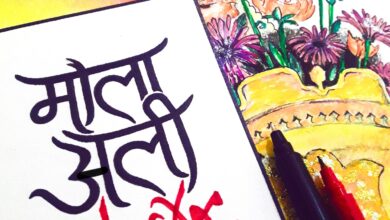 मौला
अली